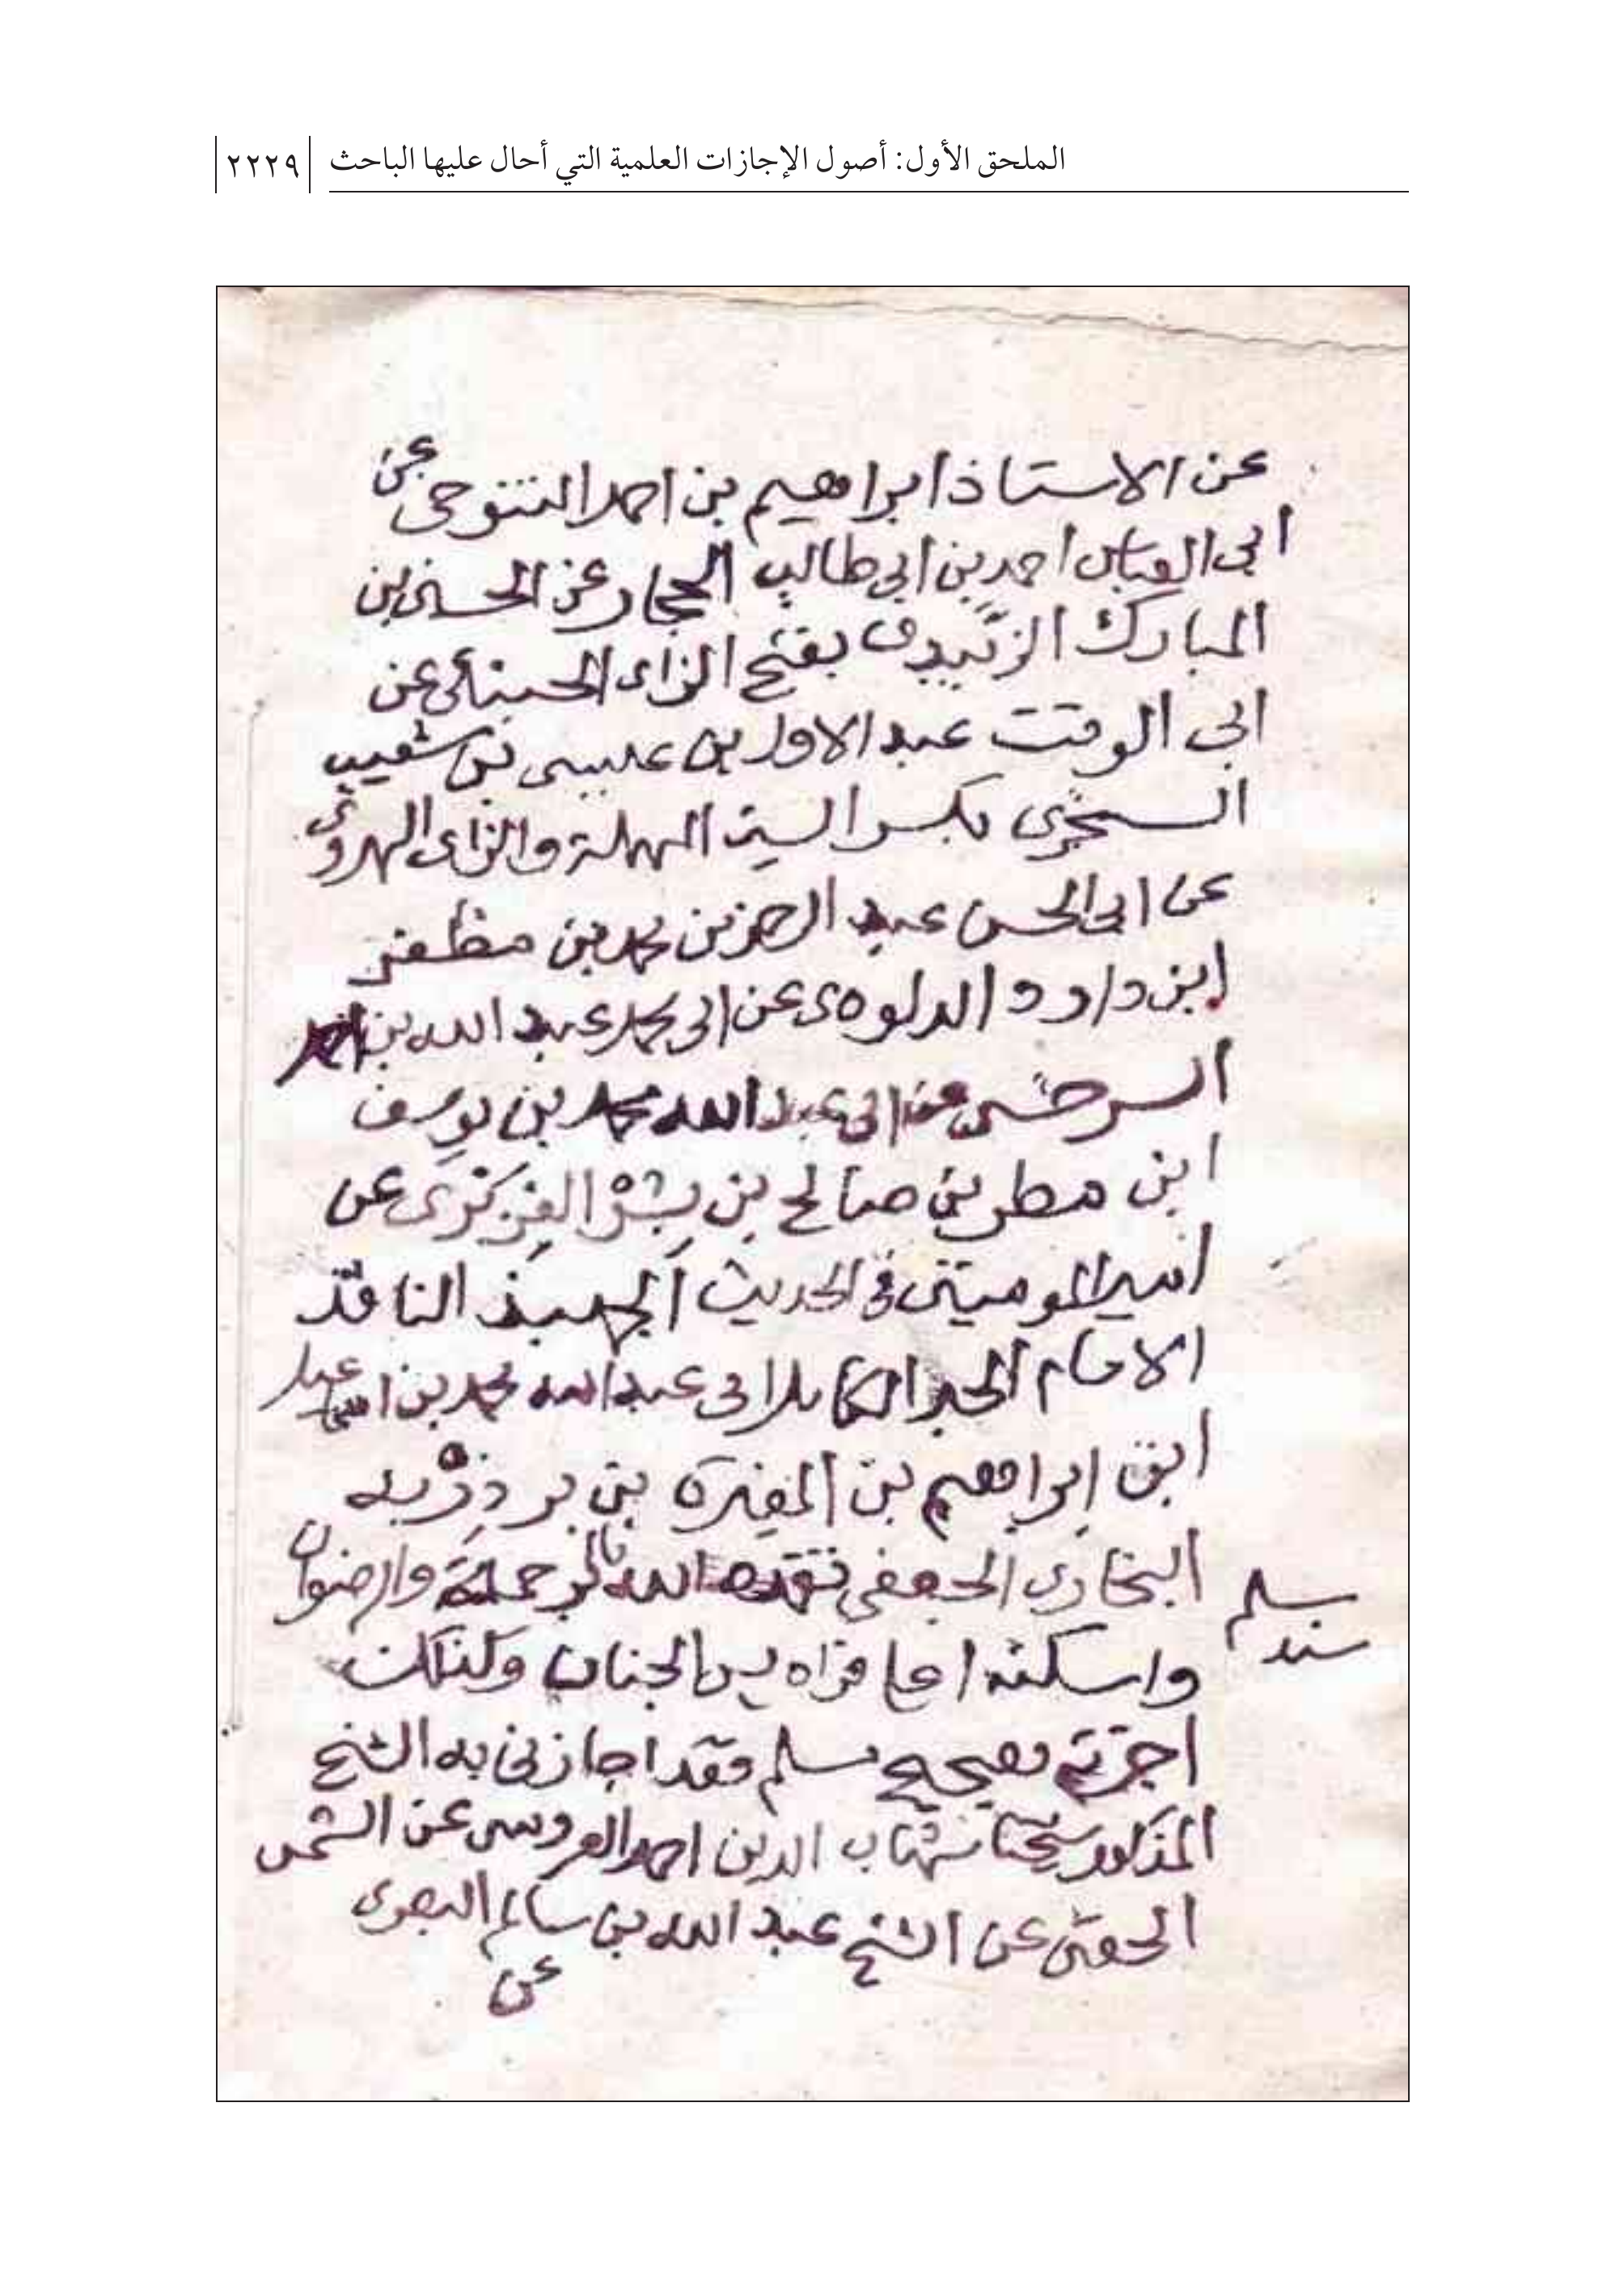 الملحق الأول: أصول الإجازات العلمية التي أحال عليها الباحث ٢٢٢٩
عن الاستاذ ابراهيم بن احمد التنوخى عن
ابى العباس احمد بن ابى طالب الحجار عن الحسين بن
المبارك الزَّبيدى بفتح الزاى الحنبلى عن
ابى الوقت عبد الاول بن عيسى بن شعيب
السجزى بكسر السين المهملة والزاى الهروى
عن ابى الحسن عبد الرحمن بن محمد بن مظفر
ابن داود الداوودى عن ابى محمد عبد الله بن احمد
السرخسى عن ابى عبد الله محمد بن يوسف
ابن مطر بن صالح بن بشر الفربرى عن
امير المومنين فى الحديث الجهبذ الناقد
الامام الحبر الكامل ابى عبد الله محمد بن اسماعيل
ابن ابراهيم بن المغيرة بن بردزبه
البخارى الجعفى تغمده الله بالرحمة والرضوان
واسكنه اعلا فراديس الجنان وكذلك
اجزته بصحيح مسلم فقد اجازنى به الشيخ
المذكور شيخنا شهاب الدين احمد العروسى عن الشمس
الحفنى عن الشيخ عبد الله بن سالم البصرى
عن
سند
مسلم